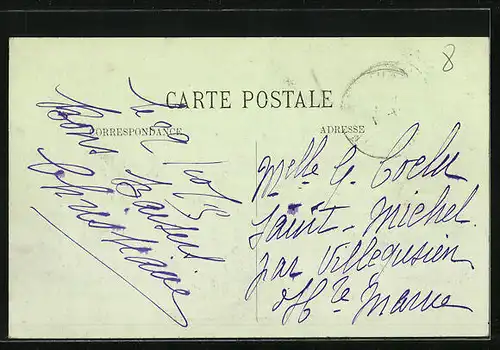 8
CARTE POSTALE
CORRESPONDANCE
ADRESSE
Bons Baisers
Christiane
Melle G. Coelu
Saint-Michel
par Villegusien
Hte Marne